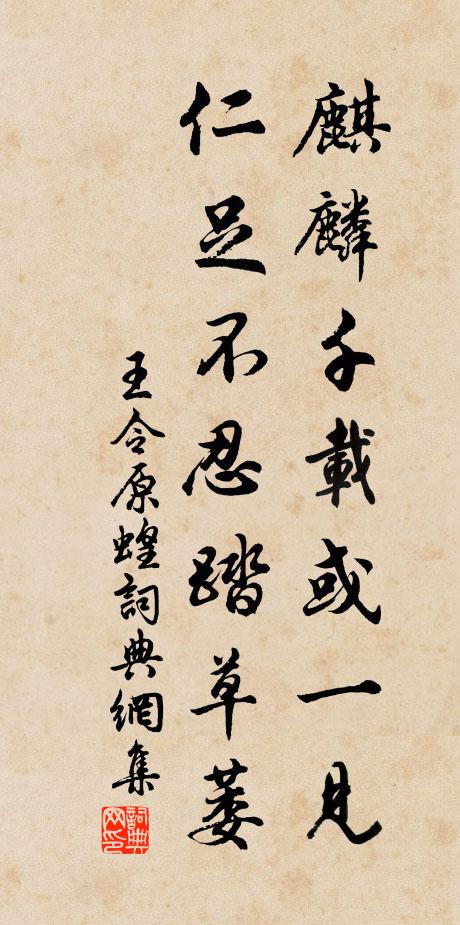 麒麟千載或一見
仁足不忍踏草萎
王令原蝗詞典網集
詞典网印